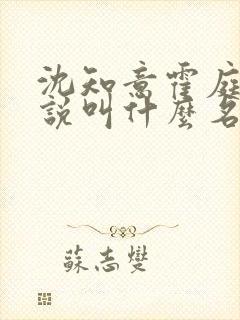 沈知意霍庭
說叫什麼名
蘇志燮